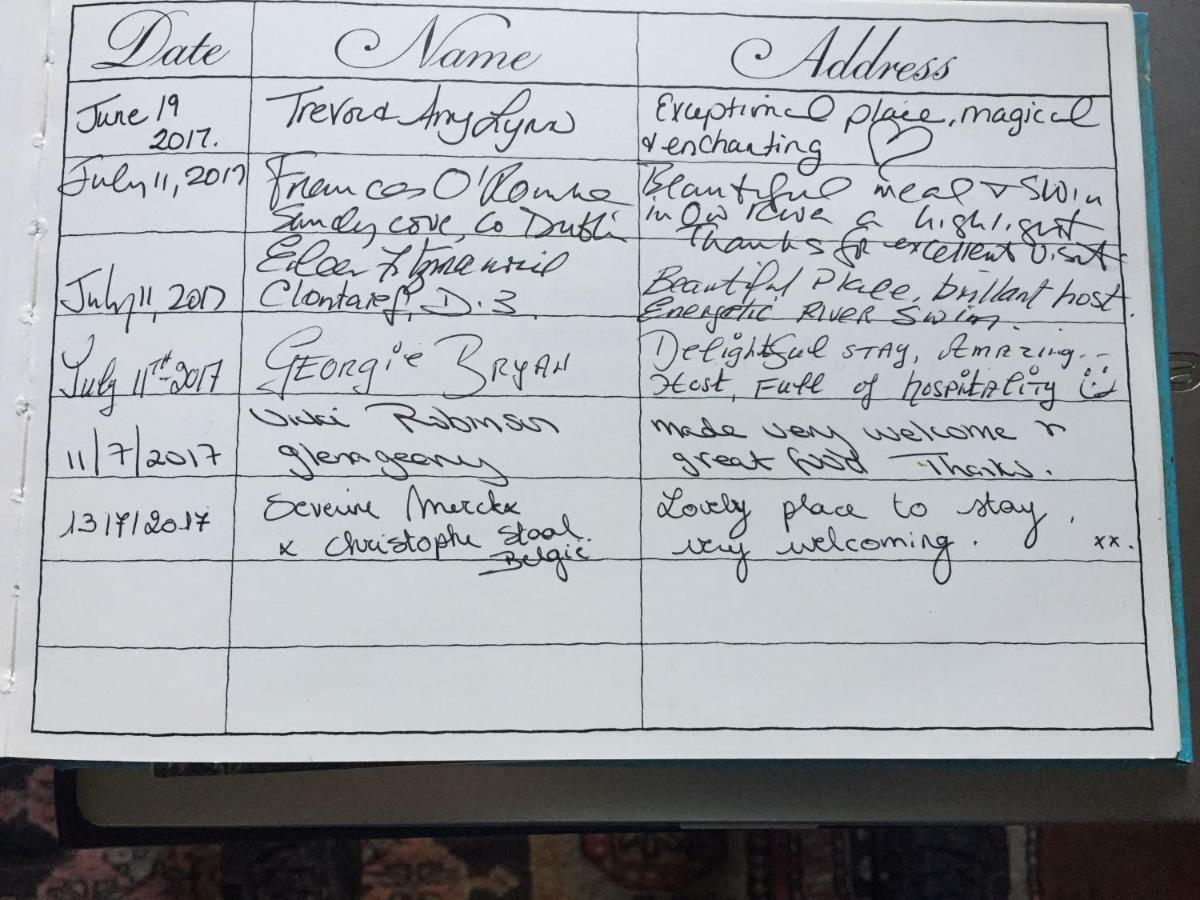 Date Name Address
June 19 2017. Trevor & Amy Lynn Exceptional place, magical
& enchanting ♡
July 11, 2017 Frances O'Rourke Beautiful meal & swim
Sandycove, Co Dublin in river a highlight
Thanks for excellent visit.
July 11, 2017 Fitzmaurice Beautiful Place, brillant host.
Clontarf, D.3. Energetic River Swim.
July 11TH-2017 Georgie Bryan Delightful stay, Amazing...
Host, Full of hospitality ☺
11/7/2017 Vicki Robinson made very welcome &
glenageary great food Thanks.
13/7/2017 Severine Merckx Lovely place to stay,
& Christophe Staal. very welcoming. xx.
Belgie